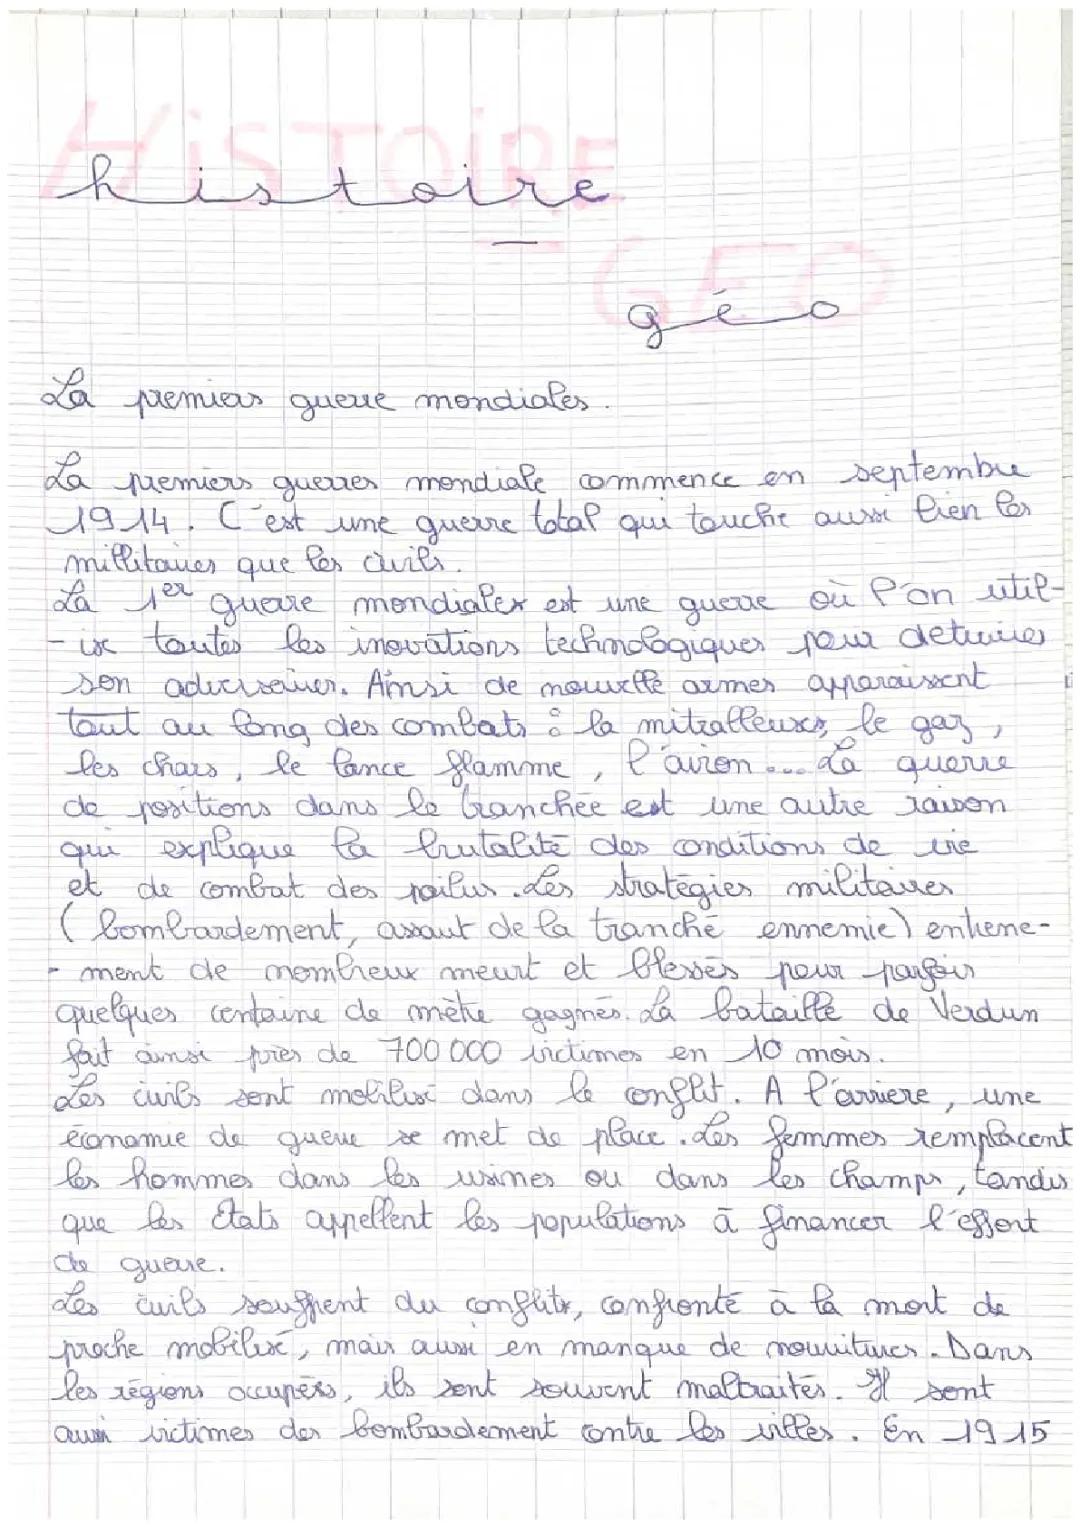 HiSTOIRE
histoire
-
GEO
géo
La premiers guerre mondiales.
La premiers guerres mondiale commence en septembre
1914. C'est une guerre total qui touche aussi bien les
millitaires que les civils.
La 1er guerre mondiales est une guerre où l'on util-
-ise toutes les inovations technologiques pour detruires
son adversaires. Ainsi de nouvelle armes apparaissent
tout au long des combats : la mitralleuses, le gaz,
les chars, le lance flamme, l'avion... La guerre
de positions dans le tranchée est une autre raison
qui explique la brutalité des conditions de vie
et de combat des poilus. Les stratégies militaires
(bombardement, assaut de la tranché ennemie) entrene-
- ment de nombreux meurt et blessés pour parfois
quelques centaine de mètre gagnés. La bataille de Verdun
fait ainsi près de 700 000 victimes en 10 mois.
Les civils sont mobilisé dans le conflit. A l'arriere, une
économie de guerre se met de place. Les femmes remplacent
les hommes dans les usines ou dans les champs, tandis
que les états appellent les populations à financer l'effort
de guerre.
Les civils souffrent du conflits, confronté à la mort de
proche mobilisé, mais aussi en manque de nourritures. Dans
les régions occupés, ils sont souvent maltraités. Il sont
aussi victimes des bombardement contre les villes. En 1915